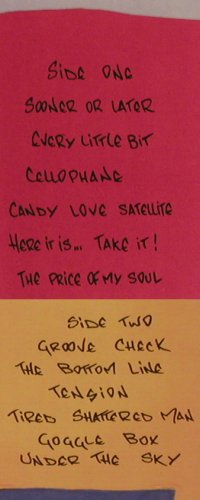 SIDE ONE
SOONER OR LATER
EVERY LITTLE BIT
CELLOPHANE
CANDY LOVE SATELLITE
HERE IT IS... TAKE IT!
THE PRICE OF MY SOUL
SIDE TWO
GROOVE CHECK
THE BOTTOM LINE
TENSION
TIRED SHATTERED MAN
GOGGLE BOX
UNDER THE SKY